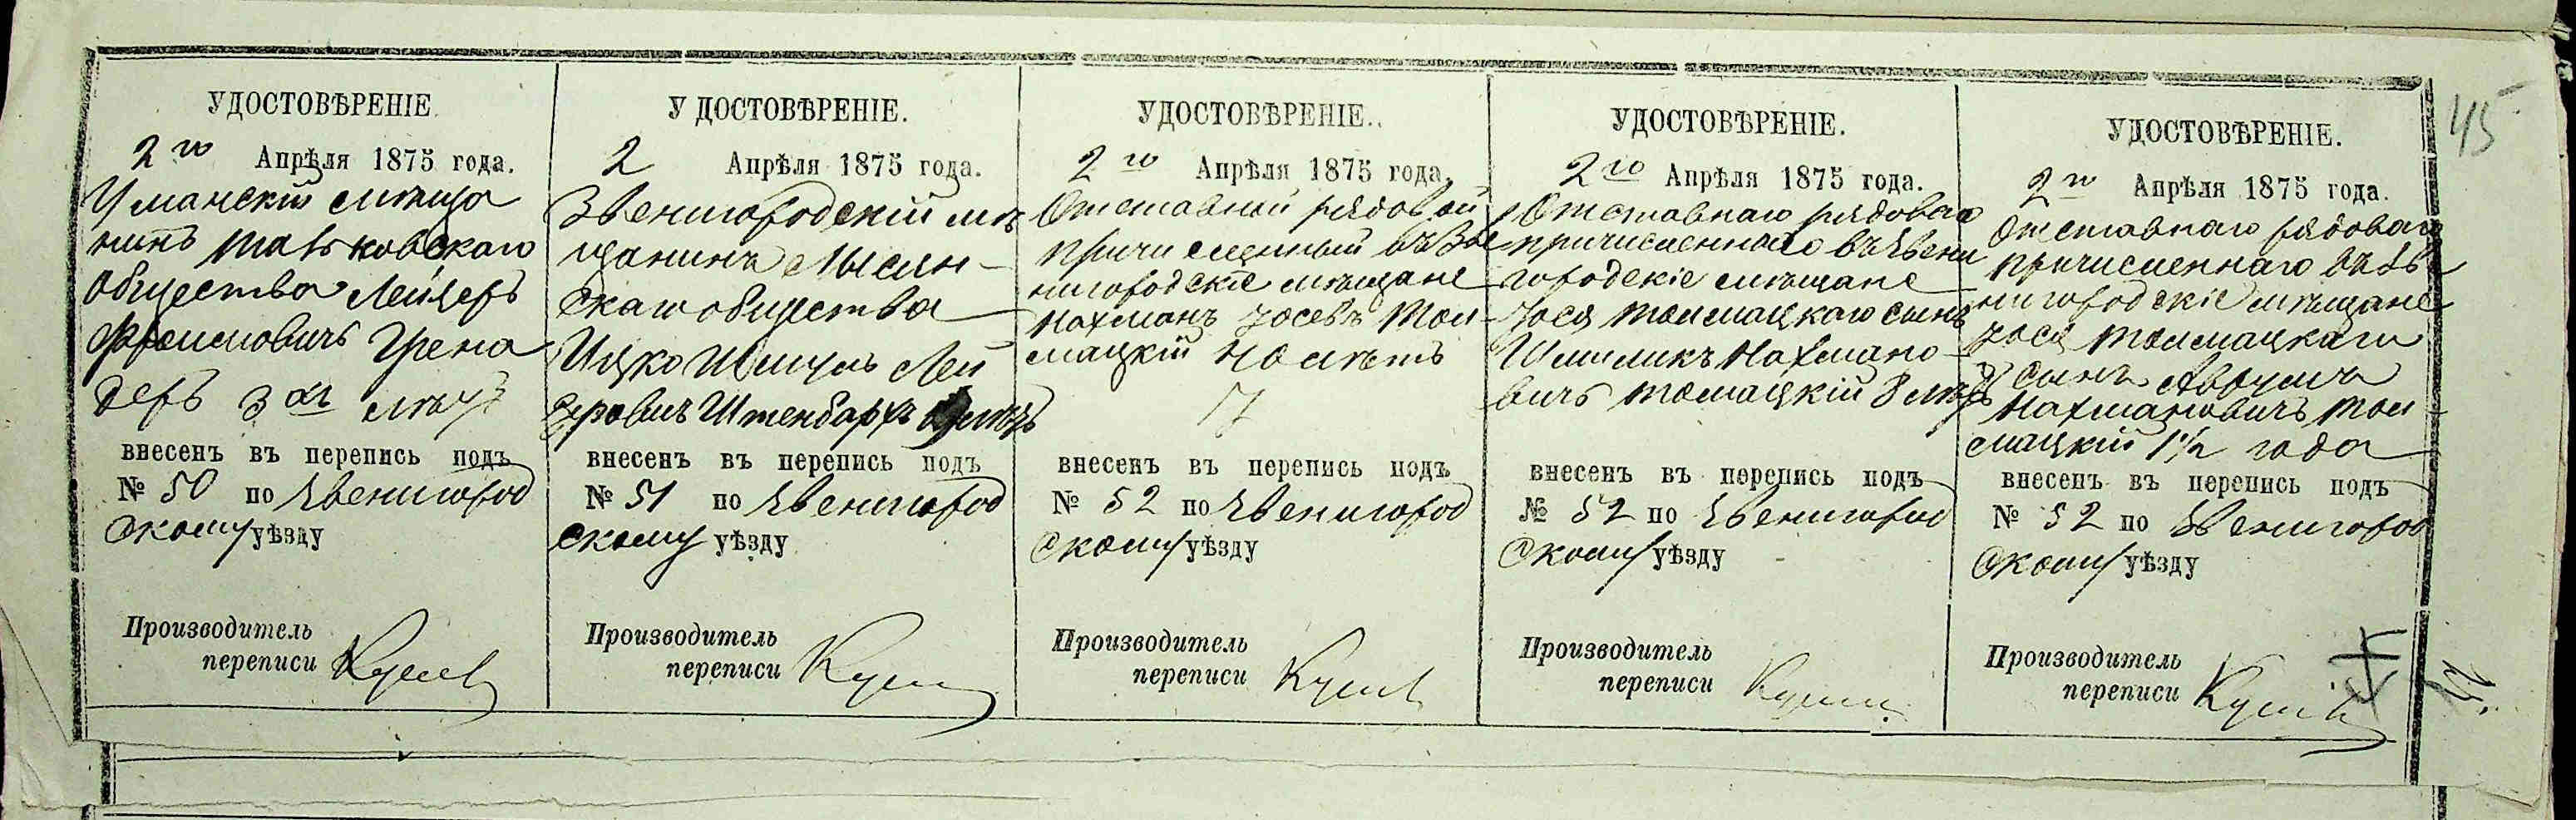 45
УДОСТОВѢРЕНІЕ.
2го Апрѣля 1875 года.
Уманскій мѣща
нинъ Тальковскаго
общества Лейзеръ
Фроимовичъ Грена
деръ 3хъ лѣтъ
внесенъ въ перепись подъ
№ 50 по Звенигород
скому уѣзду
Производитель
переписи
УДОСТОВѢРЕНІЕ.
2 Апрѣля 1875 года.
Звенигородскій мѣ
щанинъ Лысян-
скаго общества
Ицко Шмуль Лей
зеровичъ Штенбархъ лѣтъ
внесенъ въ перепись подъ
№ 51 по Звенигород
скому уѣзду
Производитель
переписи
УДОСТОВѢРЕНІЕ.
2го Апрѣля 1875 года.
Отставной рядовой
причисленный въ Зве
нигородскіе мѣщане
Нахманъ Іосевъ Тол-
мацкій 40 лѣтъ
внесенъ въ перепись подъ
№ 52 по Звенигород
скому уѣзду
Производитель
переписи
УДОСТОВѢРЕНІЕ.
2го Апрѣля 1875 года.
Отставнаго рядоваго
причисленнаго въ Звени
городскіе мѣщане
Іося Толмацкаго сынъ
Шмиликъ Нахмано-
вичъ Томацкій 8 лѣтъ
внесенъ въ перепись подъ
№ 52 по Звенигород
скому уѣзду
Производитель
переписи
УДОСТОВѢРЕНІЕ.
2го Апрѣля 1875 года.
Отставнаго рядоваго
причисленнаго въ Зве
нигородскіе мѣщане
Іося Толмацкаго
сынъ Аврумъ
Нахмановичъ Тол-
мацкій 1½ года
внесенъ въ перепись подъ
№ 52 по Звенигород
скому уѣзду
Производитель
переписи